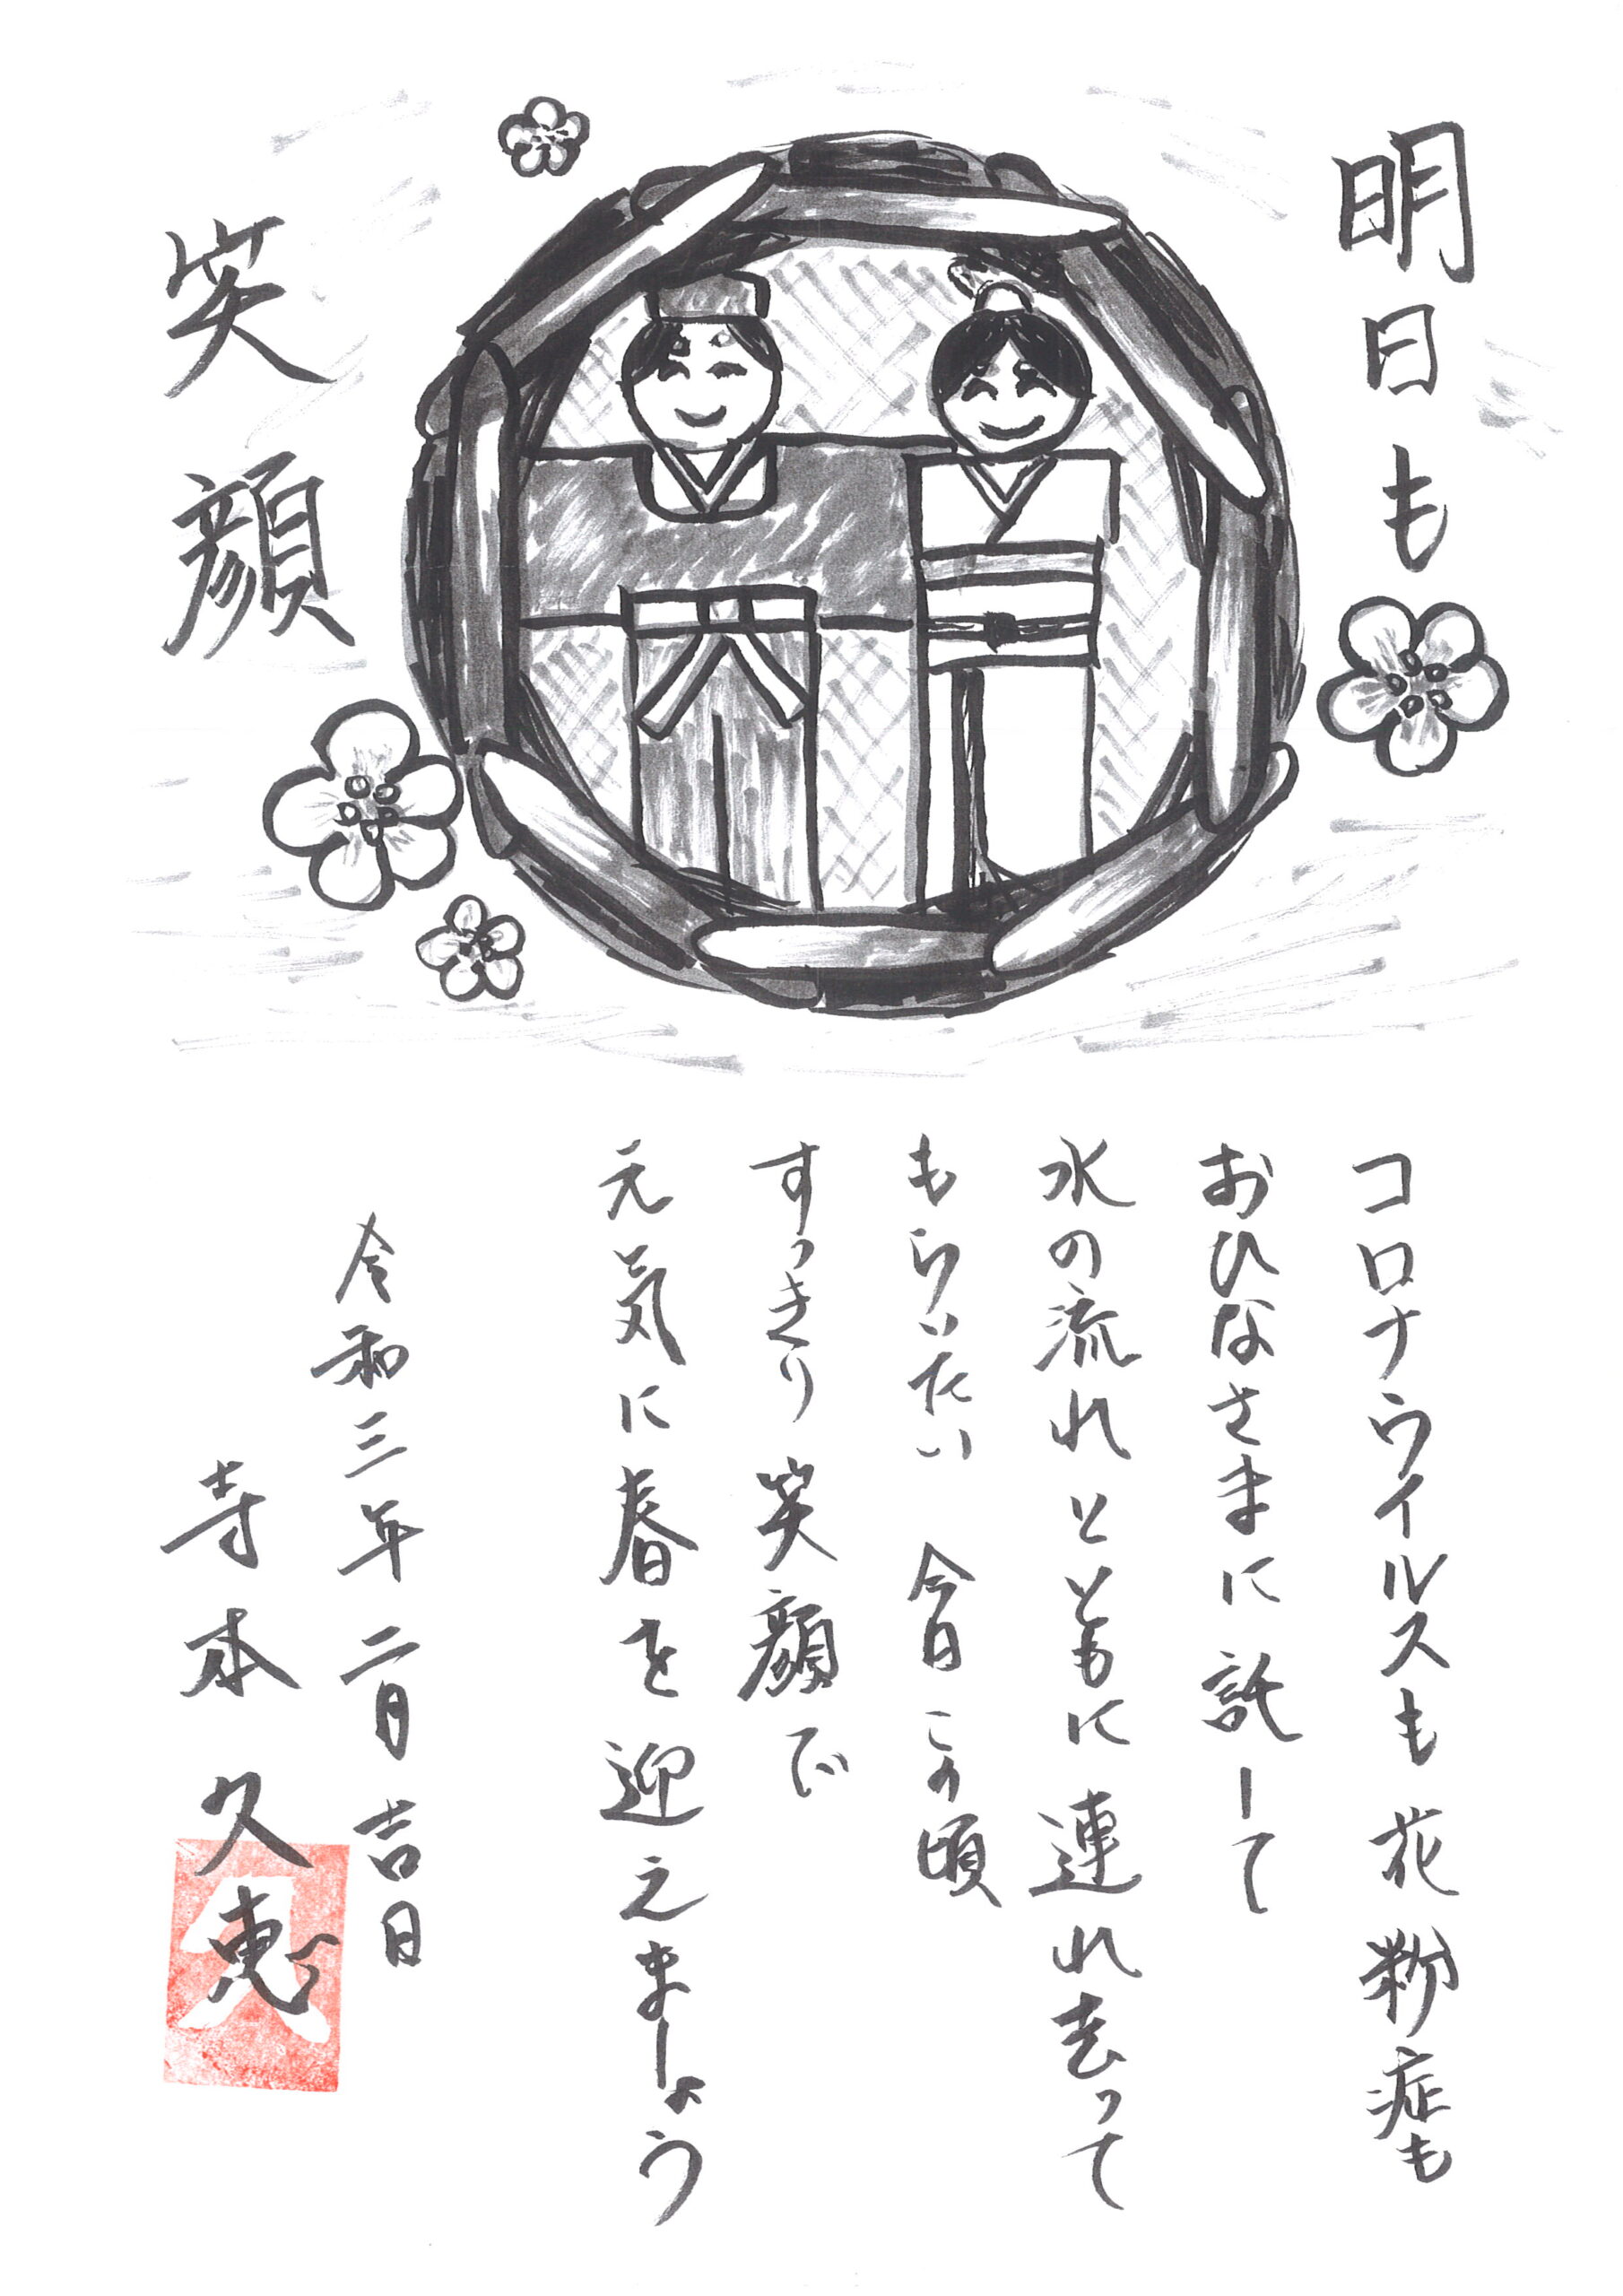 明日も
笑顔
コロナウイルスも 花粉症も
おひなさまに 託して
水の流れとともに 連れ去って
もらいたい 今日この頃
すっきり 笑顔で
元気に春を迎えましょう
令和三年二月吉日
寺本久恵
久